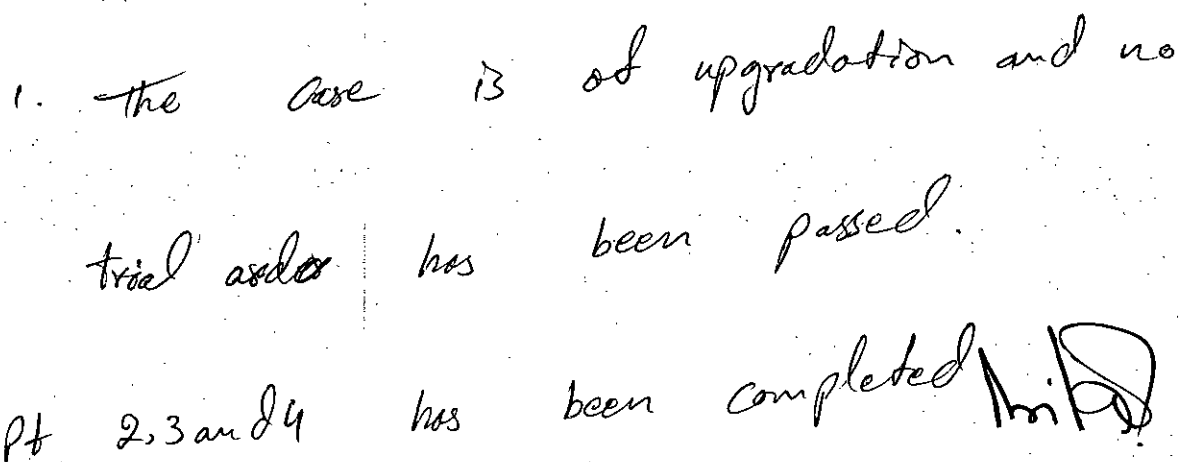 1. The case is of upgradation and no
trial order has been passed.
Pt 2,3 and 4 has been completed